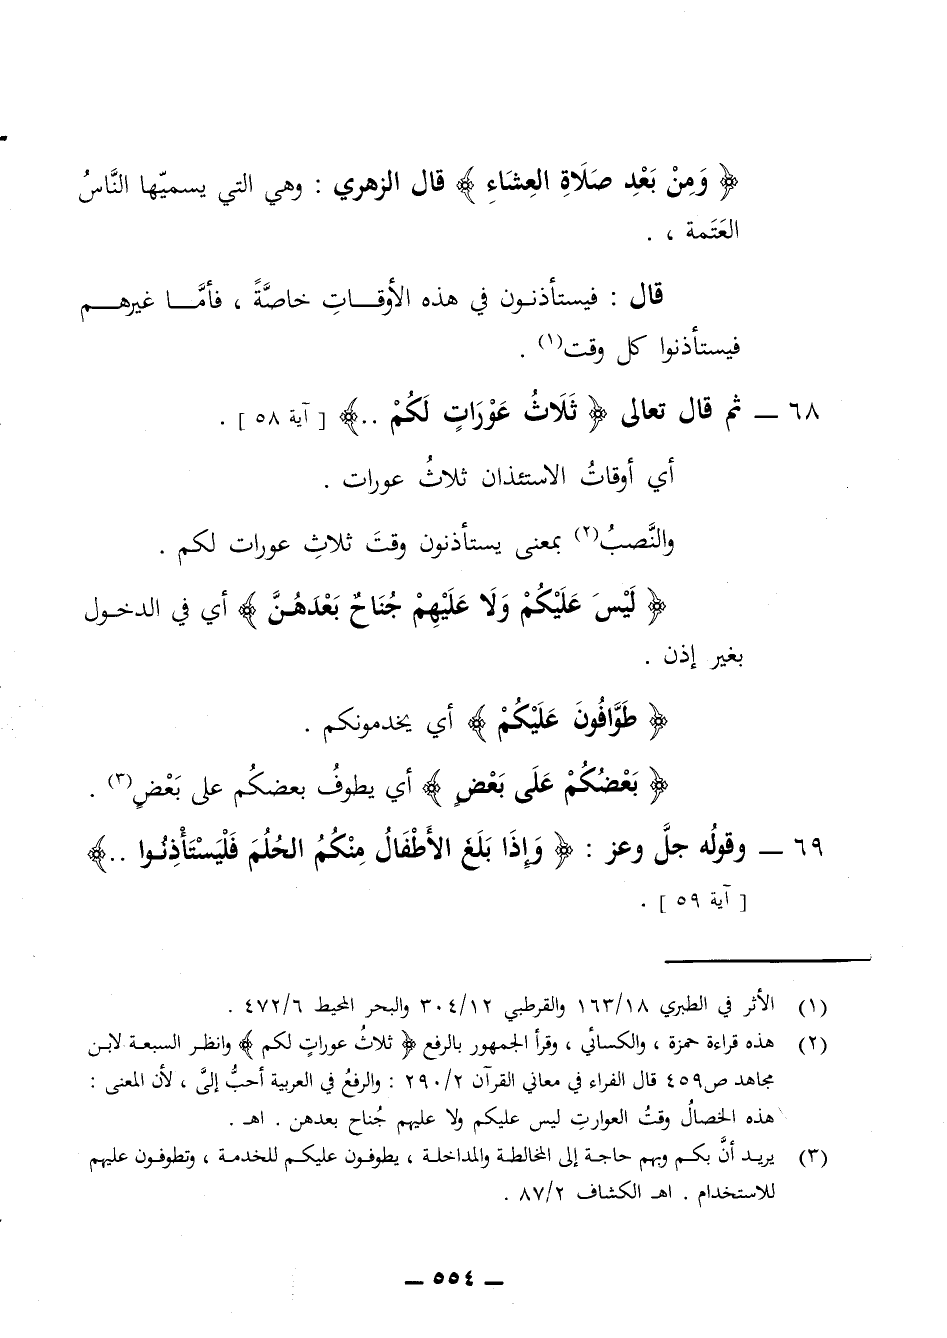 ﴿ وَمِنْ بَعْدِ صَلَاةِ العِشَاءِ ﴾ قال الزهري : وهي التي يسميّها النَّاسُ
العَتَمة ، .
قال : فيستأذنـون في هذه الأوقـــاتِ خاصَّةً ، فأمَّـــا غيرهـــم
فيستأذنوا كل وقت(١) .
٦٨ ــ ثم قال تعالى ﴿ ثَلَاثُ عَوْرَاتٍ لَكُمْ ..﴾ [ آية ٥٨ ] .
أي أوقاتُ الاستئذان ثلاثُ عورات .
والنَّصبُ(٢) بمعنى يستأذنون وقتَ ثلاثِ عورات لكم .
﴿ لَيْسَ عَلَيْكُمْ وَلَا عَلَيْهِمْ جُنَاحٌ بَعْدَهُـنَّ ﴾ أي في الدخـول
بغير إذن .
﴿ طَوَّافُونَ عَلَيْكُمْ ﴾ أي يخدمونكم .
﴿ بَعْضُكُمْ عَلَى بَعْضٍ ﴾ أي يطوفُ بعضكُم على بَعْضٍ(٣) .
٦٩ ــ وقولُه جلَّ وعز : ﴿ وَإِذَا بَلَغَ الأَطْفَالُ مِنْكُمُ الحُلُمَ فَلْيَسْتَأْذِنُـوا ..﴾
[ آية ٥٩ ] .
(١) الأثر في الطبري ١٦٣/١٨ والقرطبي ٣٠٤/١٢ والبحر المحيط ٤٧٢/٦ .
(٢) هذه قراءة حمزة ، والكسائي ، وقرأ الجمهور بالرفع ﴿ ثلاثُ عوراتٍ لكم ﴾ وانظر السبعـة لابـن
مجاهد ص٤٥٩ قال الفراء في معاني القرآن ٢٩٠/٢ : والرفعُ في العربية أحبُّ إليَّ ، لأن المعنى :
هذه الخصالُ وقتُ العوارتِ ليس عليكم ولا عليهم جُناح بعدهن . اهـ .
(٣) يريـد أنَّ بكـم وبهم حاجـة إلى المخالطـة والمداخلـة ، يطوفـون عليكـم للخدمـة ، وتطوفـون عليهم
للاستخدام . اهـ الكشاف ٨٧/٢ .
ــ ٥٥٤ ــ